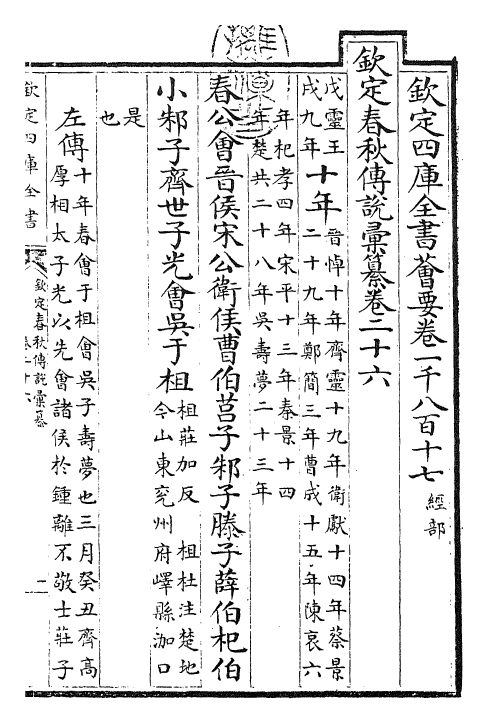 欽定四庫全書薈要卷一千八百十七 經部
欽定春秋傳說彙纂卷二十六
戊靈王
戌九年
十年
晉悼十年齊靈十九年衛獻十四年蔡景
二十九年鄭簡三年曹成十五年陳哀六
年杞孝四年宋平十三年秦景十四
年楚共二十八年吳壽夢二十三年
春公會晉侯宋公衛侯曹伯莒子邾子滕子薛伯杞伯
小邾子齊世子光會吳于柤
柤莊加反 柤杜注楚地
今山東兗州府嶧縣泇口
是
也
左傳
十年春會于柤會吳子壽夢也三月癸丑齊高
厚相太子光以先會諸侯於鍾離不敬士莊子
欽定四庫全書
欽定春秋傳說彙纂
卷二十六
一